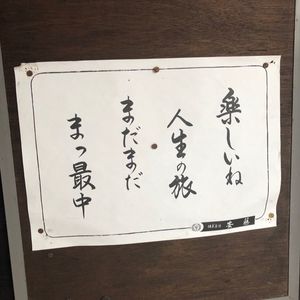 楽しいね
人生の旅
まだまだ
まっ最中